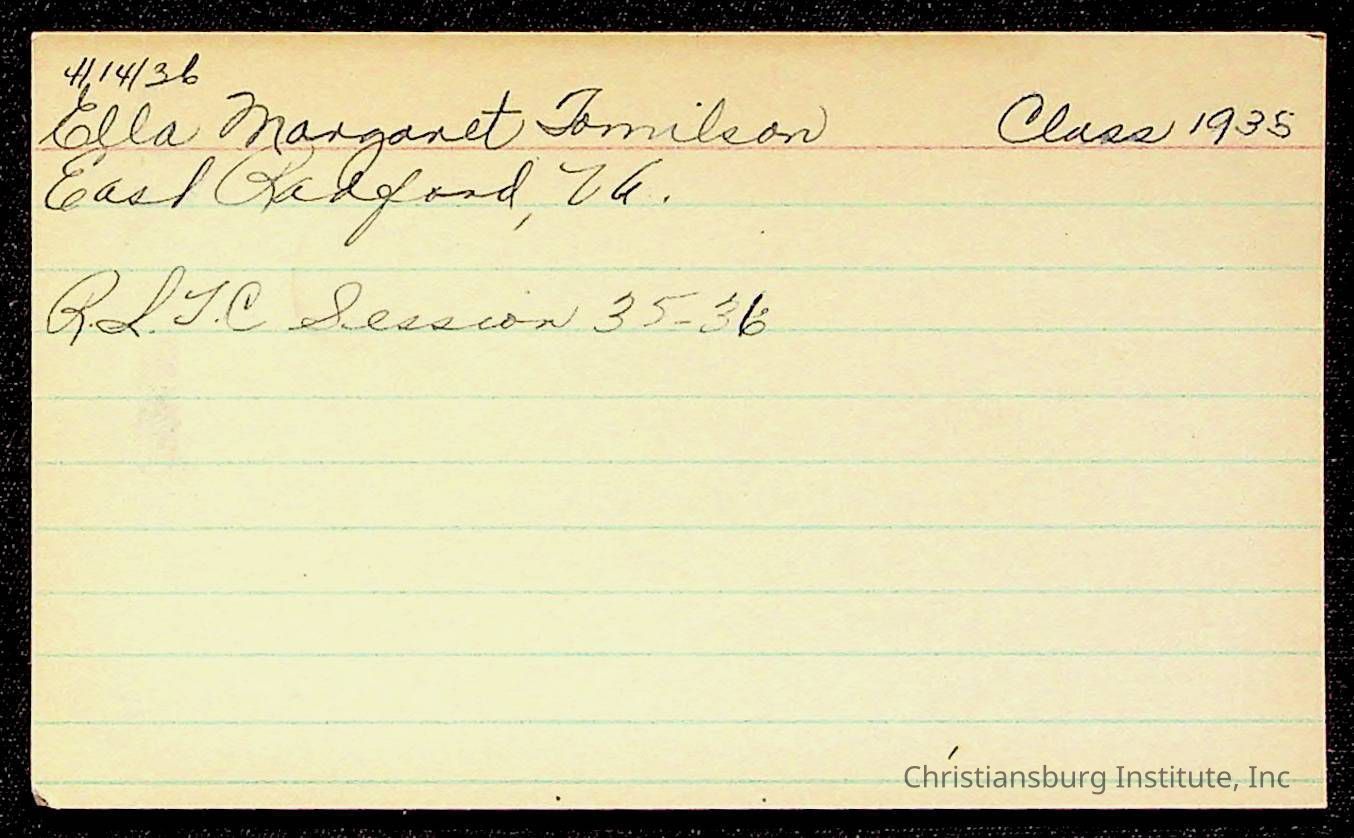 4/14/36
Ella Margaret Tomilson Class 1935
East Radford, Va.
R.S.T.C Session 35-36
Christiansburg Institute, Inc